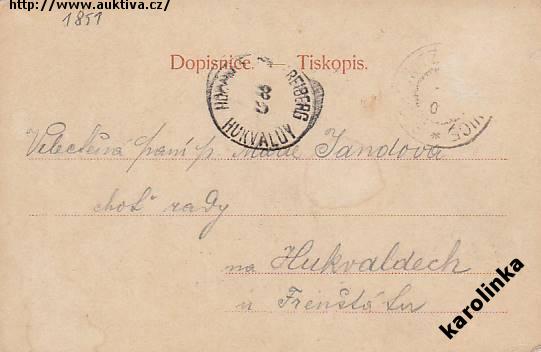 http://www.auktiva.cz/
1851
Dopisnice. — Tiskopis.
HUKVALDY
Velectěná paní p. Marie Jandova
choť rady
na Hukvaldech
u Frenštátu
karolinka